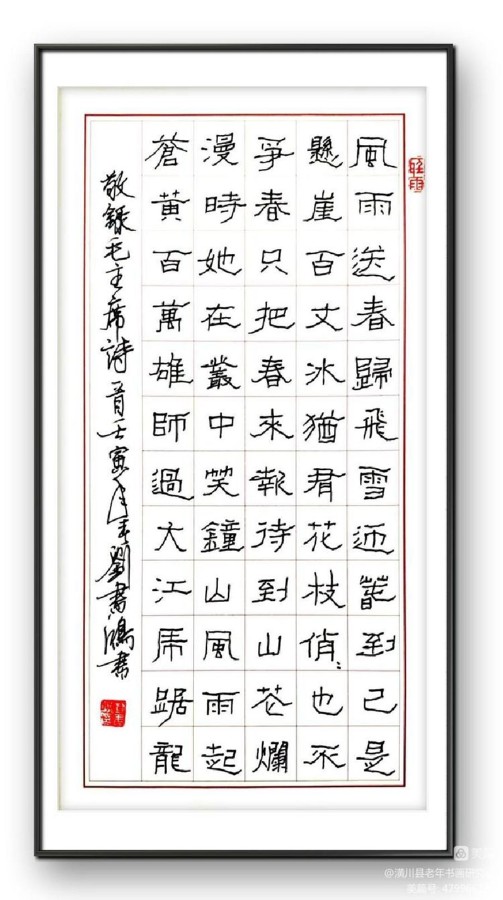 風雨送春歸飛雪迎萅到已是
懸崖百丈冰猶有花枝俏〻也不
爭春只把春來報待到山花爛
漫時她在叢中笑鐘山風雨起
蒼黃百萬雄師過大江虎踞龍
敬錄毛主席詩首壬寅年劉書鴻書
@潢川县老年书画研
美篇号